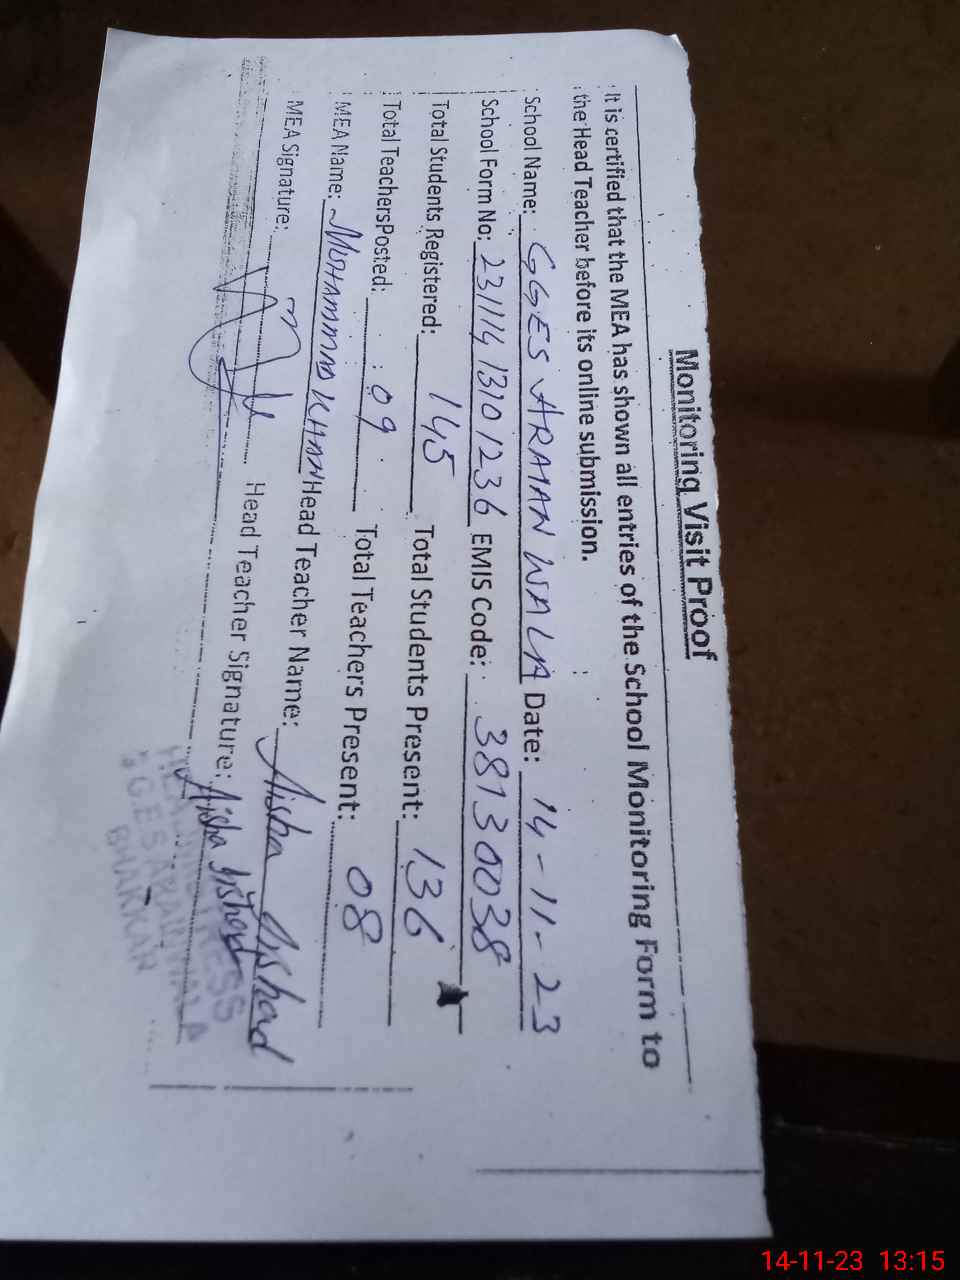 Monitoring Visit Proof
It is certified that the MEA has shown all entries of the School Monitoring Form to
the Head Teacher before its online submission.
School Name: GGES ARAIAN WALA Date: 14-11-23
School Form No: 23111413101236 EMIS Code: 38130038
Total Students Registered: 145 Total Students Present: 136
Total TeachersPosted: 09 Total Teachers Present: 08
MEA Name: MUHAMMAD KHAN Head Teacher Name: Aisha Arshad
MEA Signature: Head Teacher Signature: Aisha Arshad
HEADMISTRESS
G.G.E.S ARAIANWALA
BHAKKAR
14-11-23 13:15